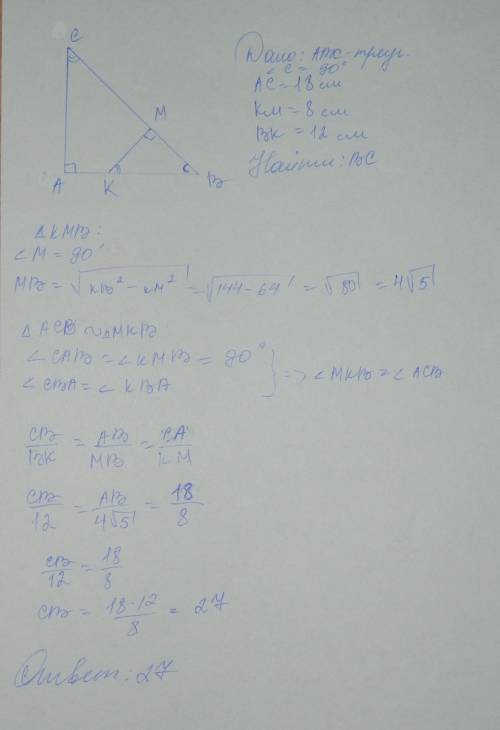 C
M
A K B
Дано: АВС - треуг.
∠C = 90°
AC = 18 см
KM = 8 см
BK = 12 см
Найти: BC
△KMB:
∠M = 90°
MB = √(KB² - KM²) = √(144 - 64) = √80 = 4√5
△ACB ∾ △MKB
∠CAB = ∠KMB = 90°
∠CBA = ∠KBA } => ∠MKB = ∠ACB
CB/BK = AB/MB = CA/KM
CB/12 = AB/4√5 = 18/8
CB/12 = 18/8
CB = 18·12/8 = 27
Ответ: 27